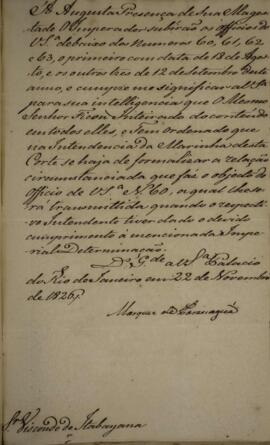 A' Augusta Presença de Sua Mages
tade O Imperador subirão os Officios de
V.S.ª debaixo dos Numeros 60, 61, 62
e 63, o primeiro com data de 18 de Agos
to, e os outros tres de 12 de Setembro deste
anno, e cumpre me significar a V.S.ª
para sua intelligencia que O Mesmo
Senhor Ficou Inteirado do conteudo
em todos elles, e Tem Ordenado que
na Intendencia da Marinha desta
Corte se haja de formalizar a relação
circunstanciada que faz o objecto do
Officio de V.S.ª N.º 60, a qual lhe se
rá transmittida quando o respecti
vo Intendente tiver dado o devido
cumprimento á mencionada Impe
rial Determinação.
D.s G.e a V.S.ª Palacio
do Rio de Janeiro em 22 de Novembro
de 1826.
Marquez de Paranaguá
Sr. Visconde de Itabayana